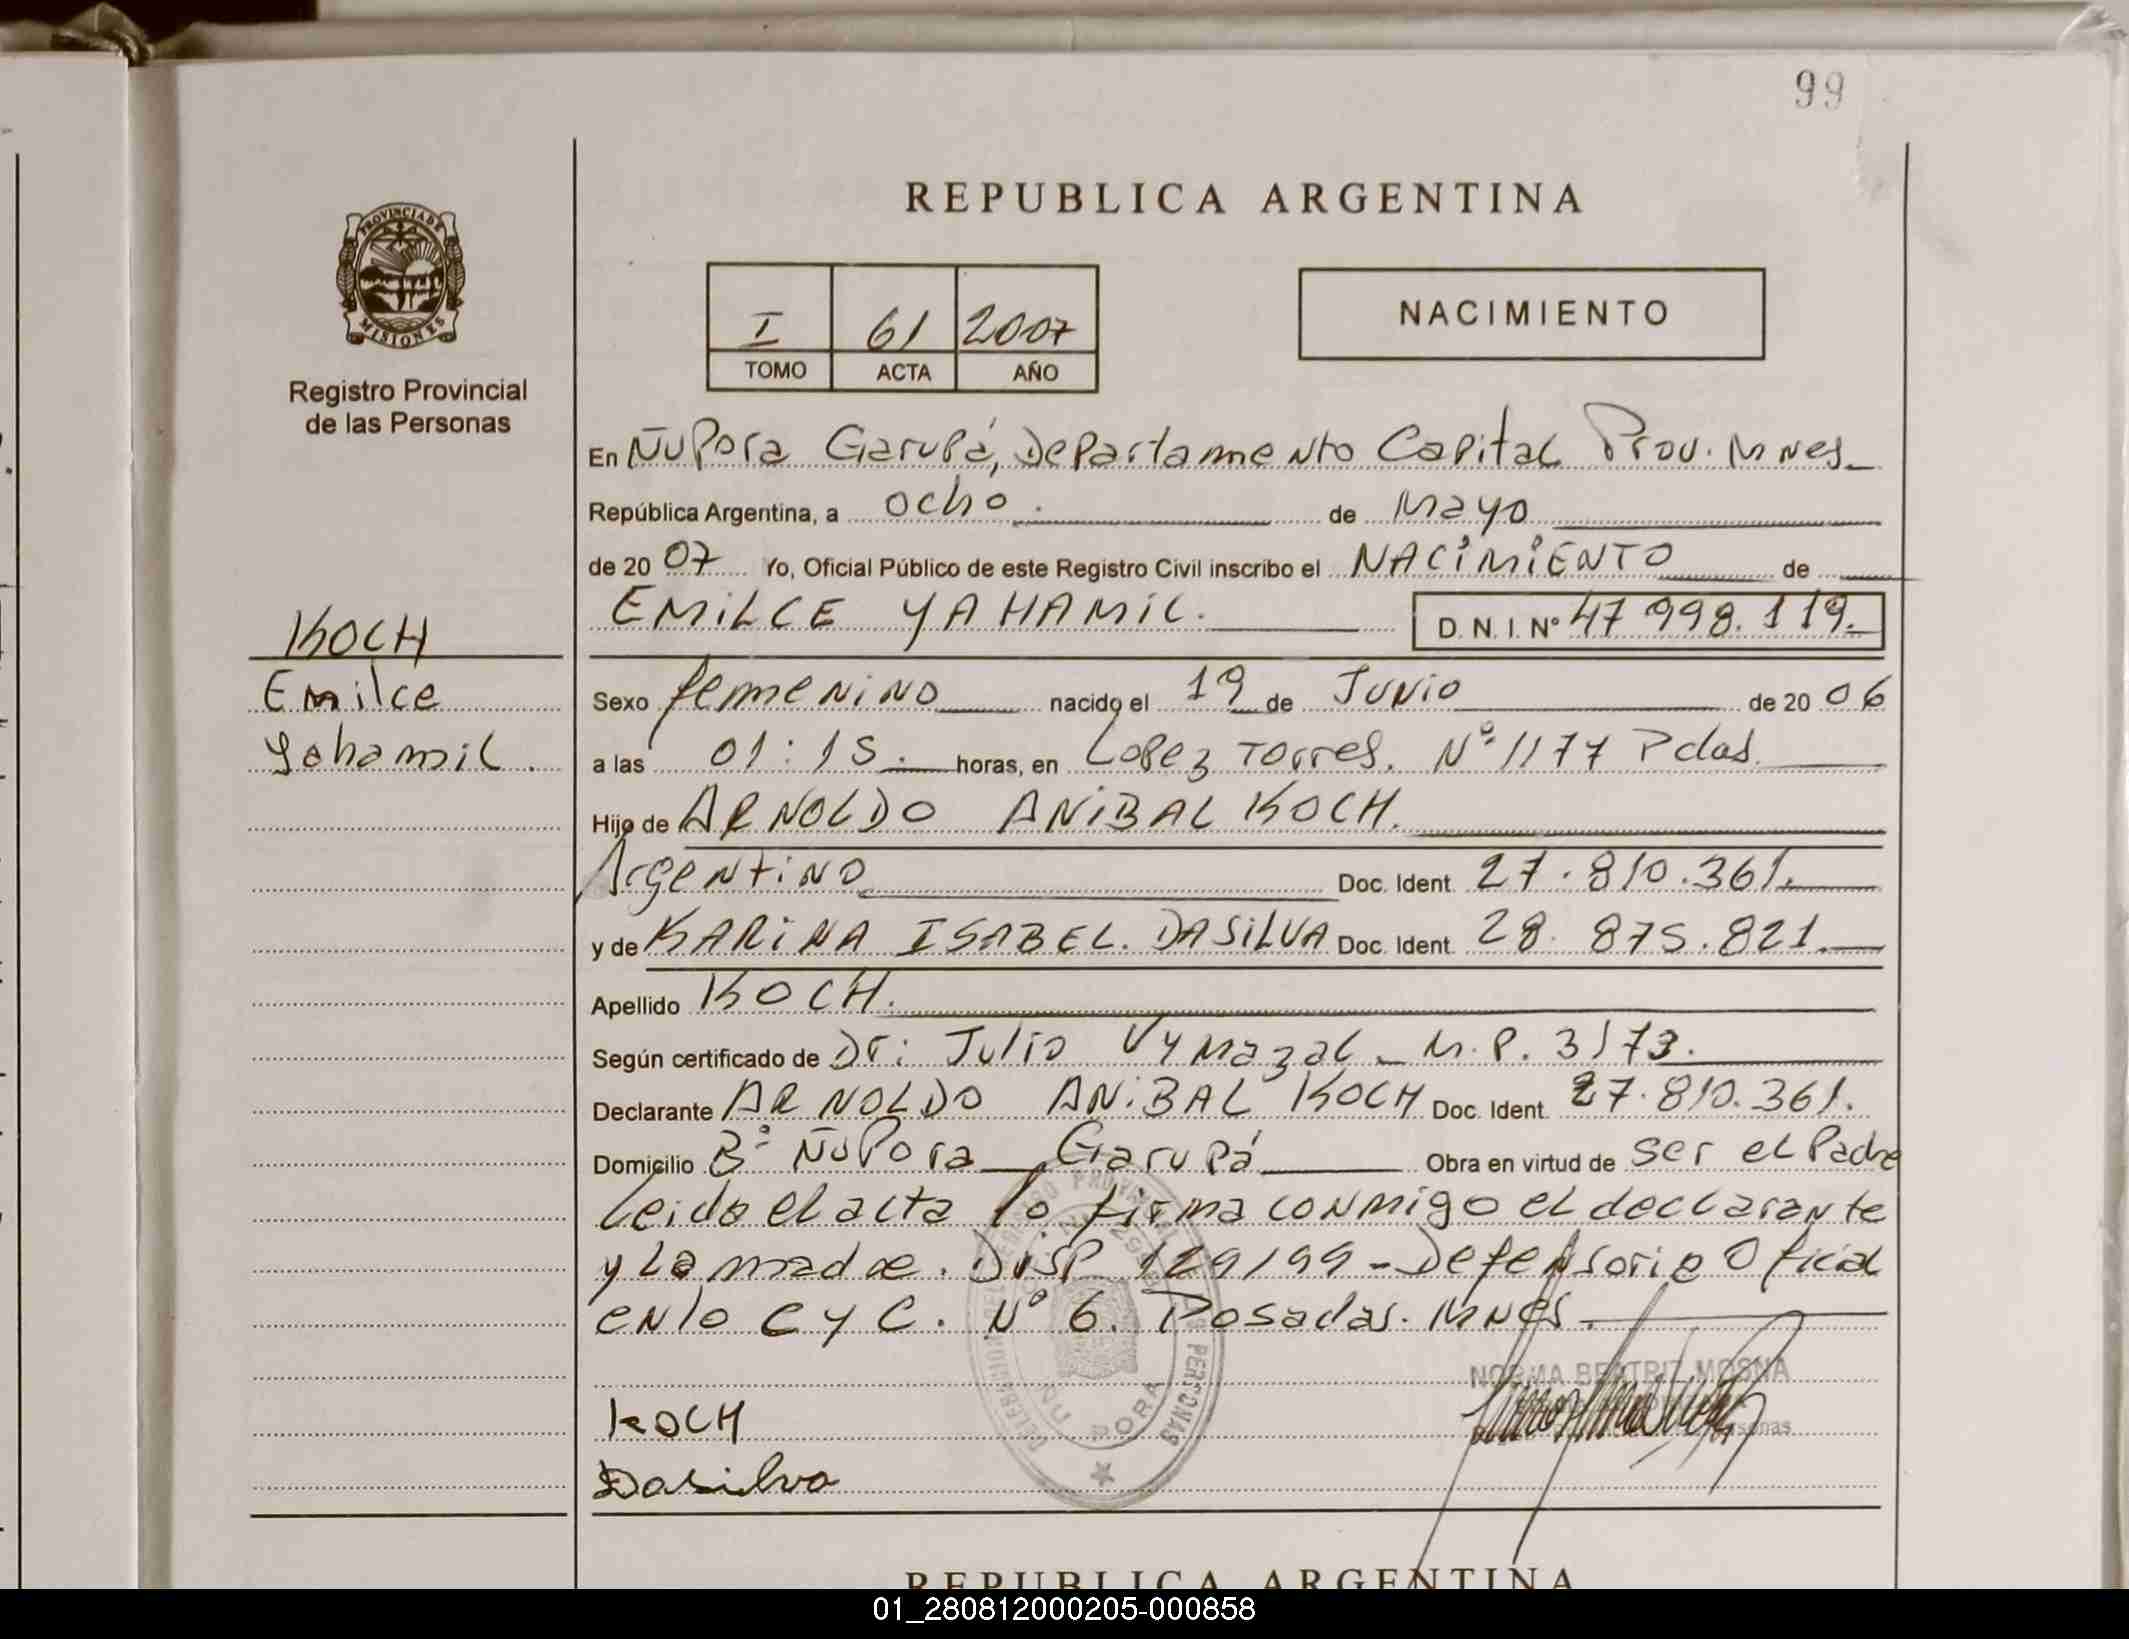 99
REPUBLICA ARGENTINA
PROVINCIA DE
MISIONES
Registro Provincial
de las Personas
I 61 2007
TOMO ACTA AÑO
NACIMIENTO
En ÑuPora Garupá, Departamento Capital Prov. Mnes.
República Argentina, a ocho. de Mayo
de 20 07 Yo, Oficial Público de este Registro Civil inscribo el NACIMIENTO de
EMILCE YAHAMIL. D. N. I. Nº 47 998.119.
KOCH
Emilce
Yahamil.
Sexo femenino nacido el 19 de Junio de 20 06
a las 01:15. horas, en Lopez Torres. Nº 1177 Pdas.
Hijo de ARNOLDO ANIBAL KOCH.
Argentino Doc. Ident. 27.810.361.
y de KARINA ISABEL. DASILVA Doc. Ident. 28.875.821.
Apellido KOCH.
Según certificado de Dr: Julio Vymazal - M.P. 3173.
Declarante ARNOLDO ANIBAL KOCH Doc. Ident. 27.810.361.
Domicilio Bº ÑuPora Garupá Obra en virtud de ser el Padre
Leida el acta lo firma conmigo el declarante
y la madre. Disp 129/99 - Defensoria Oficial
en lo C y C. Nº 6. Posadas. Mnes.
NORMA BEATRIZ MOSNA
KOCH
Dasilva
ÑU PORA
REPUBLICA ARGENTINA
01_280812000205-000858